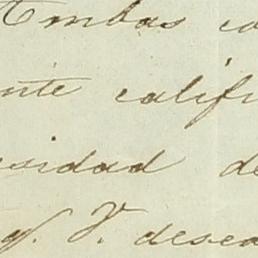 Ambas co
nte calif
sidad de
V. desea